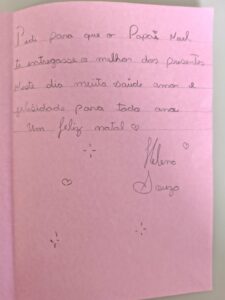 Pedi para que o Papai Noel
te entregasse o melhor dos presentes
neste dia muita saúde amor e
felicidade para todo ano
Um feliz natal ♡
Helena
Souza